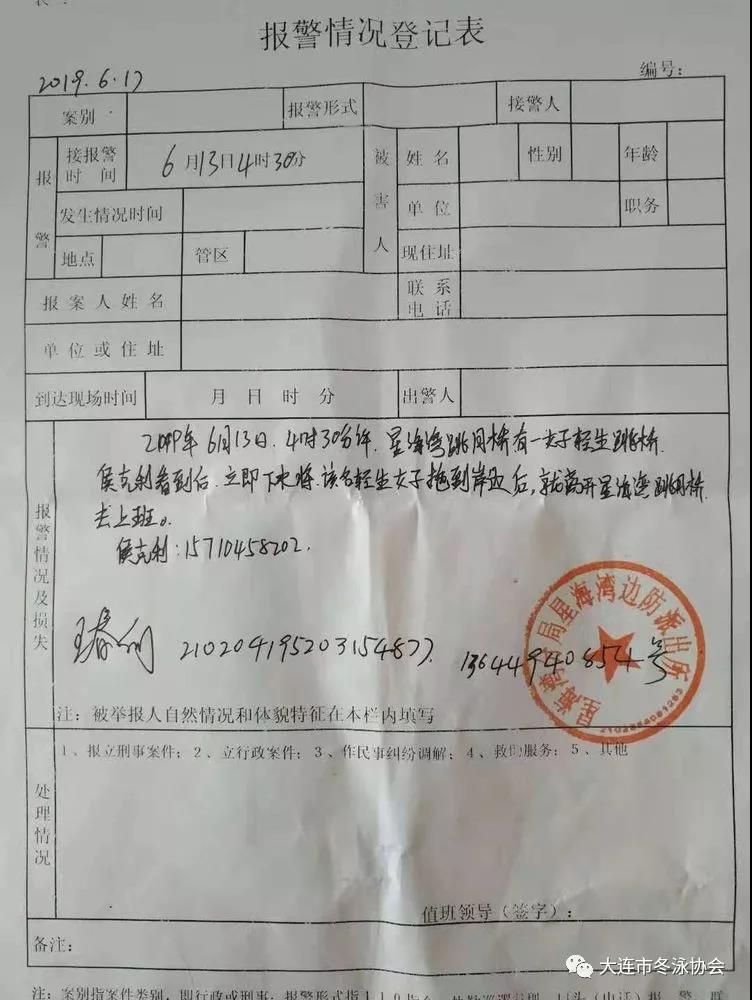 报警情况登记表
2019.6.17
编号：
案别 报警形式 接警人
报警 接报警时间 6月13日4时30分 被害人 姓名 性别 年龄
发生情况时间 单位 职务
地点 管区 现住址
报案人姓名 联系电话
单位或住址
到达现场时间 月 日 时 分 出警人
报警情况及损失
2019年6月13日.4时30分许.星海湾跳月桥有一女子轻生跳桥.
侯克利看到后.立即下水将.该名轻生女子拖到岸边后,就离开星海湾跳月桥.
去上班。
侯克利:15710458202.
210204195203154877. 13644940854号
星海湾边防派出所
注：被举报人自然情况和体貌特征在本栏内填写
处理情况
1、报立刑事案件；2、立行政案件；3、作民事纠纷调解；4、救助服务；5、其他
值班领导（签字）：
备注：
大连市冬泳协会
注：案别指案件类别，即行政或刑事；报警形式指110指令、